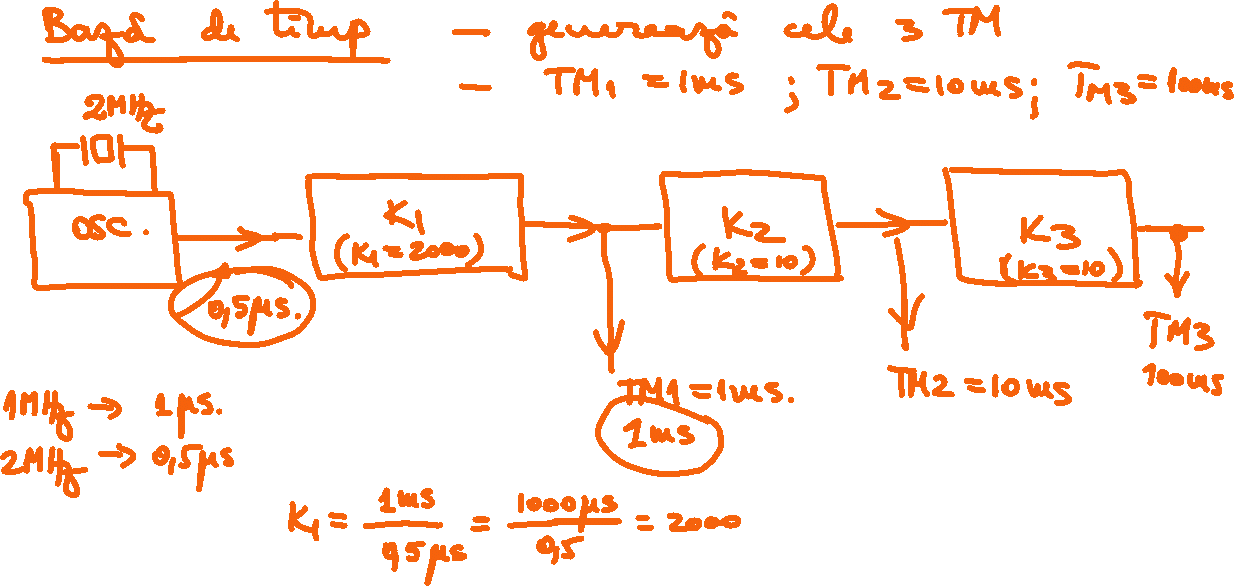 Bază de timp – generează cele 3 TM
– TM1 = 1ms ; TM2 = 10ms; TM3 = 100ms
2MHz
OSC.
K1
(K1 = 2000)
K2
(K2 = 10)
K3
(K3 = 10)
0,5µs.
TM1 = 1ms.
1ms
TM2 = 10ms
TM3
100ms
1MHz → 1µs.
2MHz → 0,5µs
K1 = 1ms / 0,5µs = 1000µs / 0,5 = 2000